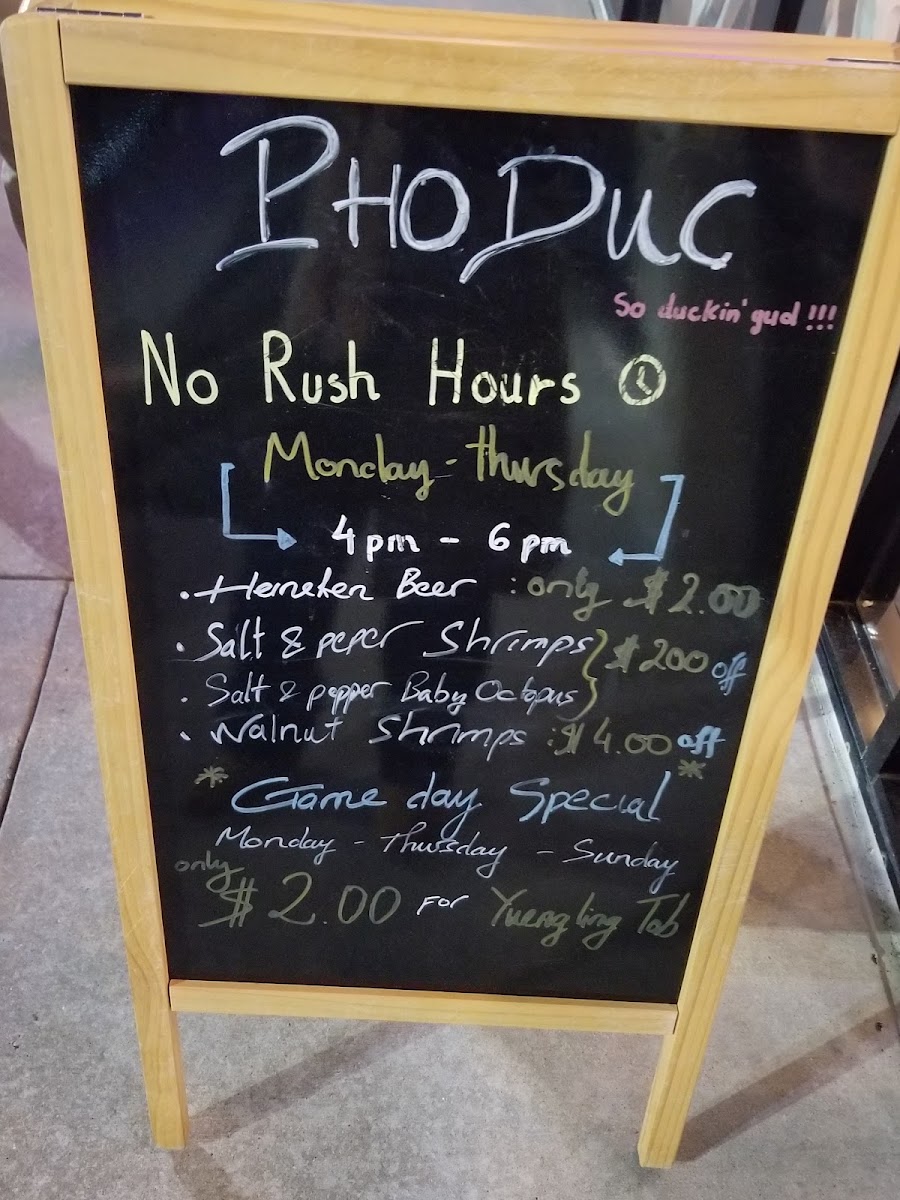 PHO DUC
So duckin' gud !!!
No Rush Hours
Monday - Thursday
4 pm - 6 pm
. Heineken Beer : only $2.00
. Salt & peper Shrimps } $200 off
. Salt & pepper Baby Octopus
. Walnut Shrimps : $4.00 off
* Game day Special *
Monday - Thursday - Sunday
only
$2.00 FOR Yuengling Tab